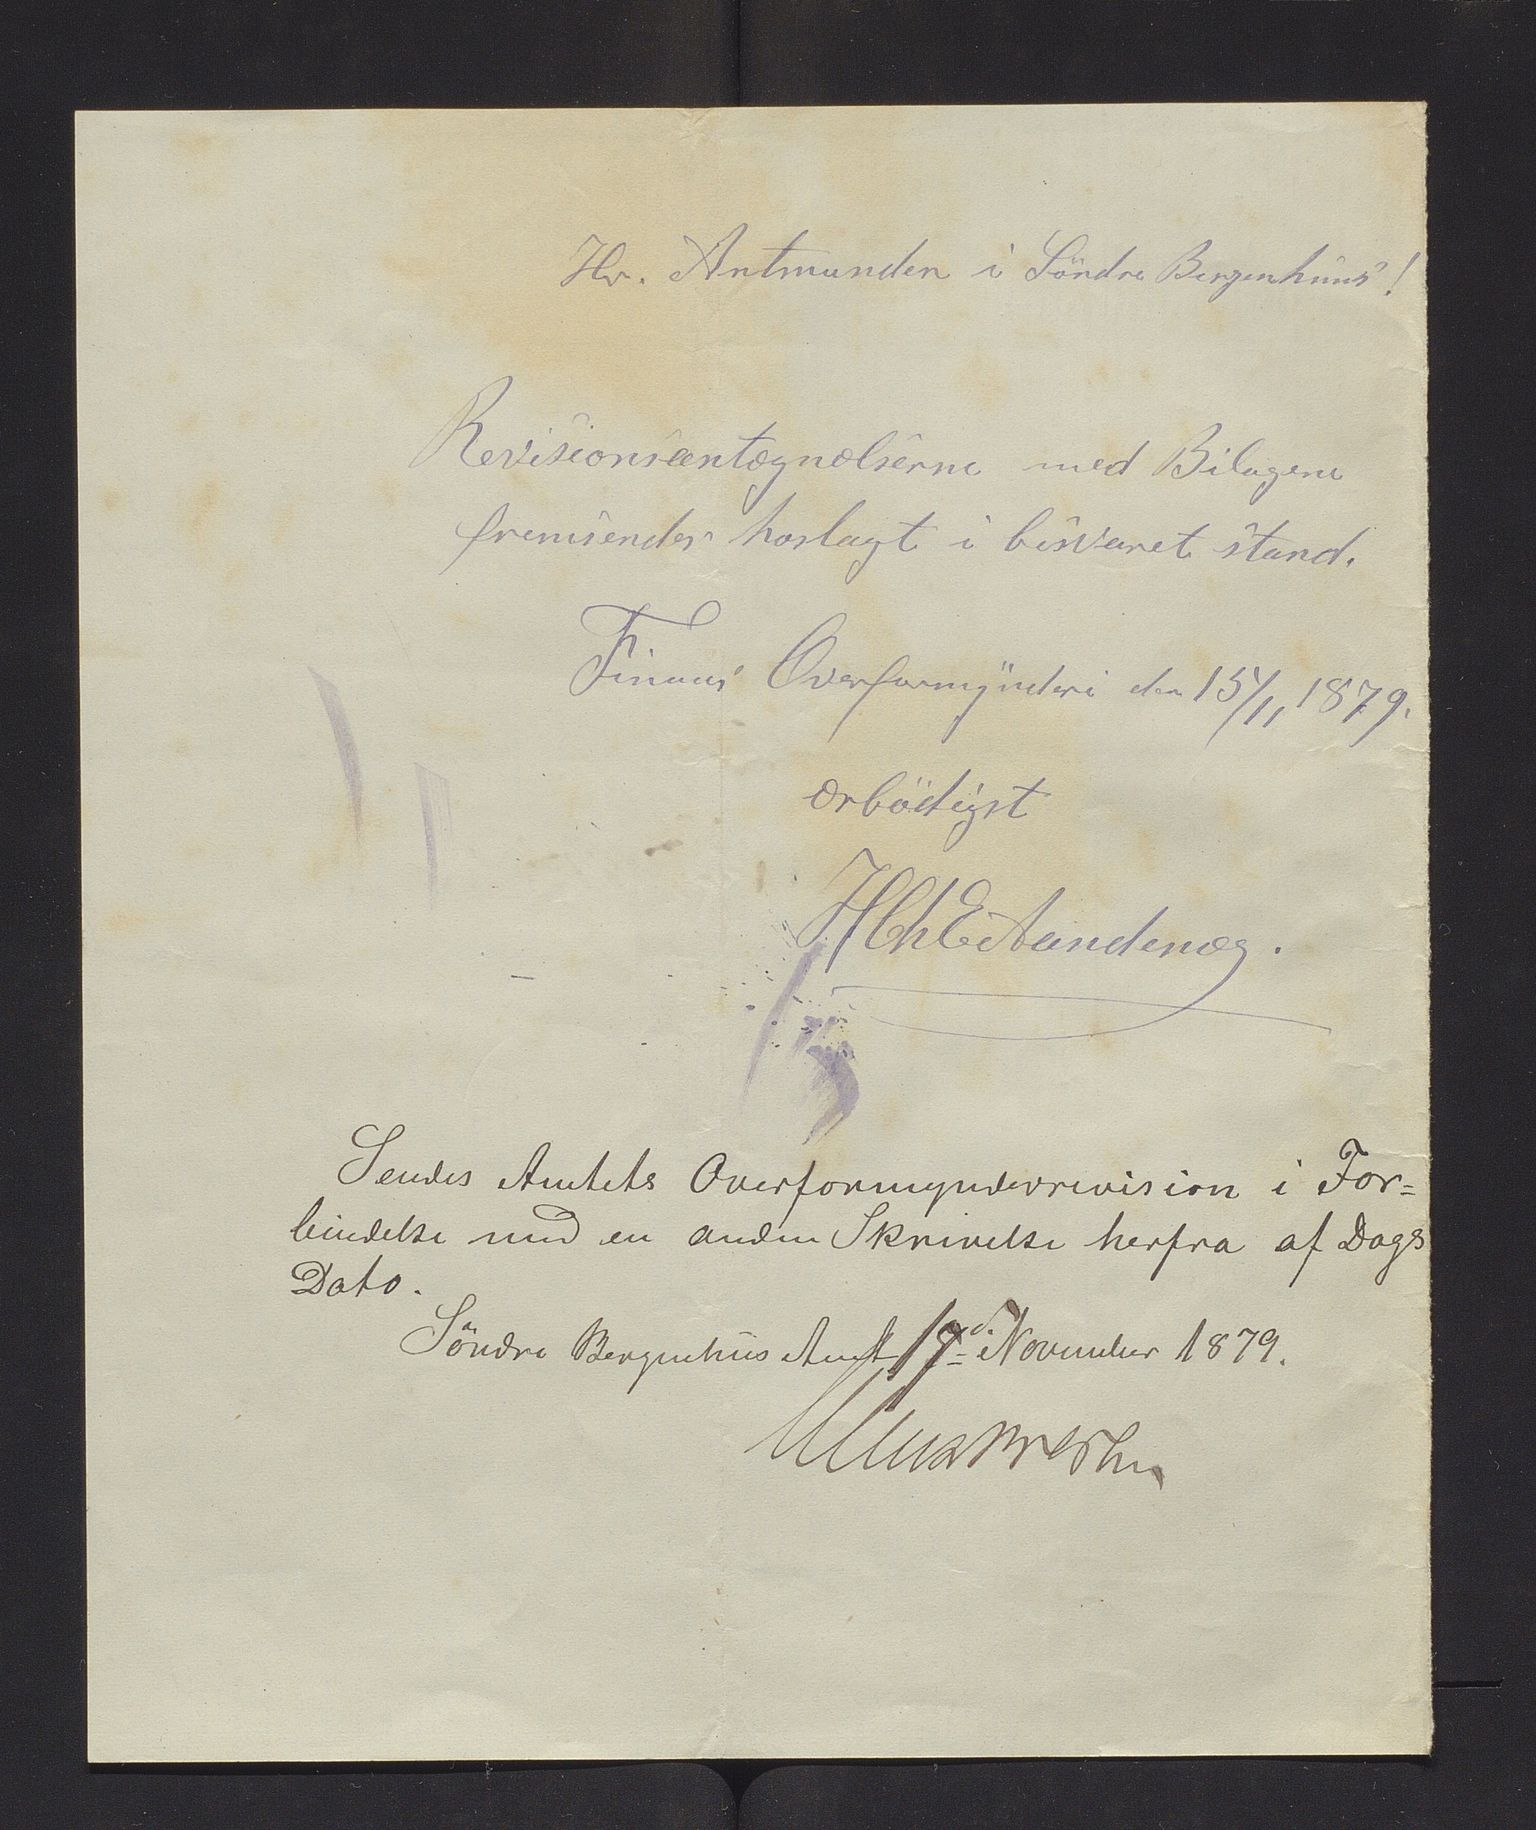 Hr. Amtmanden i Söndre Bergenhuus!
Revisionsantegnelserne med Bilagene
fremsendes hoslagt i besvaret stand.
Finaas Overformynderi den 15/11 1879.
ærbödigst
HChEAandenæs.
Sendes Amtets Overformynderrevision i For=
bindelse med en anden Skrivelse herfra af Dags
Dato.
Söndre Bergenhus Amt 17de November 1879.